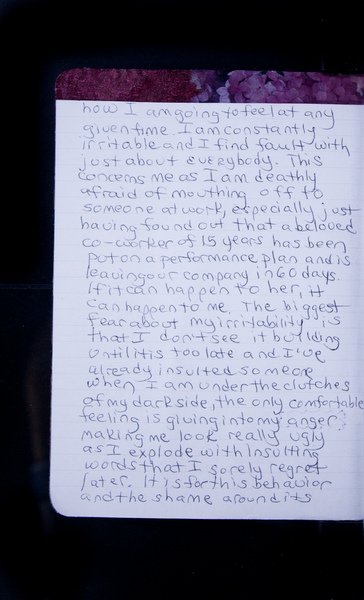 how I am going to feel at any
given time. I am constantly
irritable and I find fault with
just about everybody. This
concerns me as I am deathly
afraid of mouthing off to
someone at work, especially just
having found out that a beloved
co-worker of 15 years has been
put on a performance plan and is
leaving our company in 60 days.
If it can happen to her, it
can happen to me. The biggest
fear about my irritability is
that I don't see it building
until it is too late and I've
already insulted someone
when I am under the clutches
of my dark side, the only comfortable
feeling is giving into my anger
making me look really ugly
as I explode with insulting
words that I sorely regret
later. It is for this behavior
and the shame around its